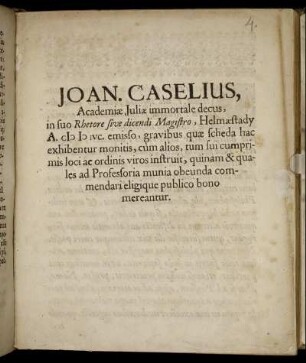 4.
JOAN. CASELIUS,
Academiæ Juliæ immortale decus,
in suo Rhetore sive dicendi Magistro, Helmæstady
A. cIↃ IↃ ivc. emisso, gravibus quæ scheda hac
exhibentur monitis, cùm alios, tum sui cumpri-
mis loci ac ordinis viros instruit, quinam & qua-
les ad Professoria munia obeunda com-
mendari eligique publico bono
mereantur.